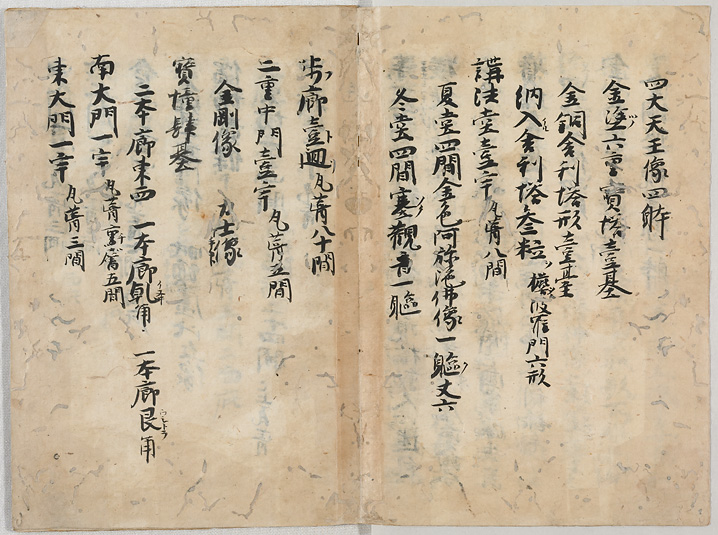 四大天王像四躰
金塗六重寳塔壹基
金銅舎利塔形壹基
納入舎利塔叄粒 波羅門六形
講法堂壹宇 瓦葺八間
夏堂四間金色阿弥陀佛像一軀丈六
冬堂四間塞觀音一軀
歩廊壹廻瓦葺八十間
二重中門壹宇 瓦葺五間
金剛像 力士像
寳幢肆基
二本廊東西 一本廊乹角 一本廊艮角
南大門一宇 瓦葺 五間
東大門一宇 瓦葺三間